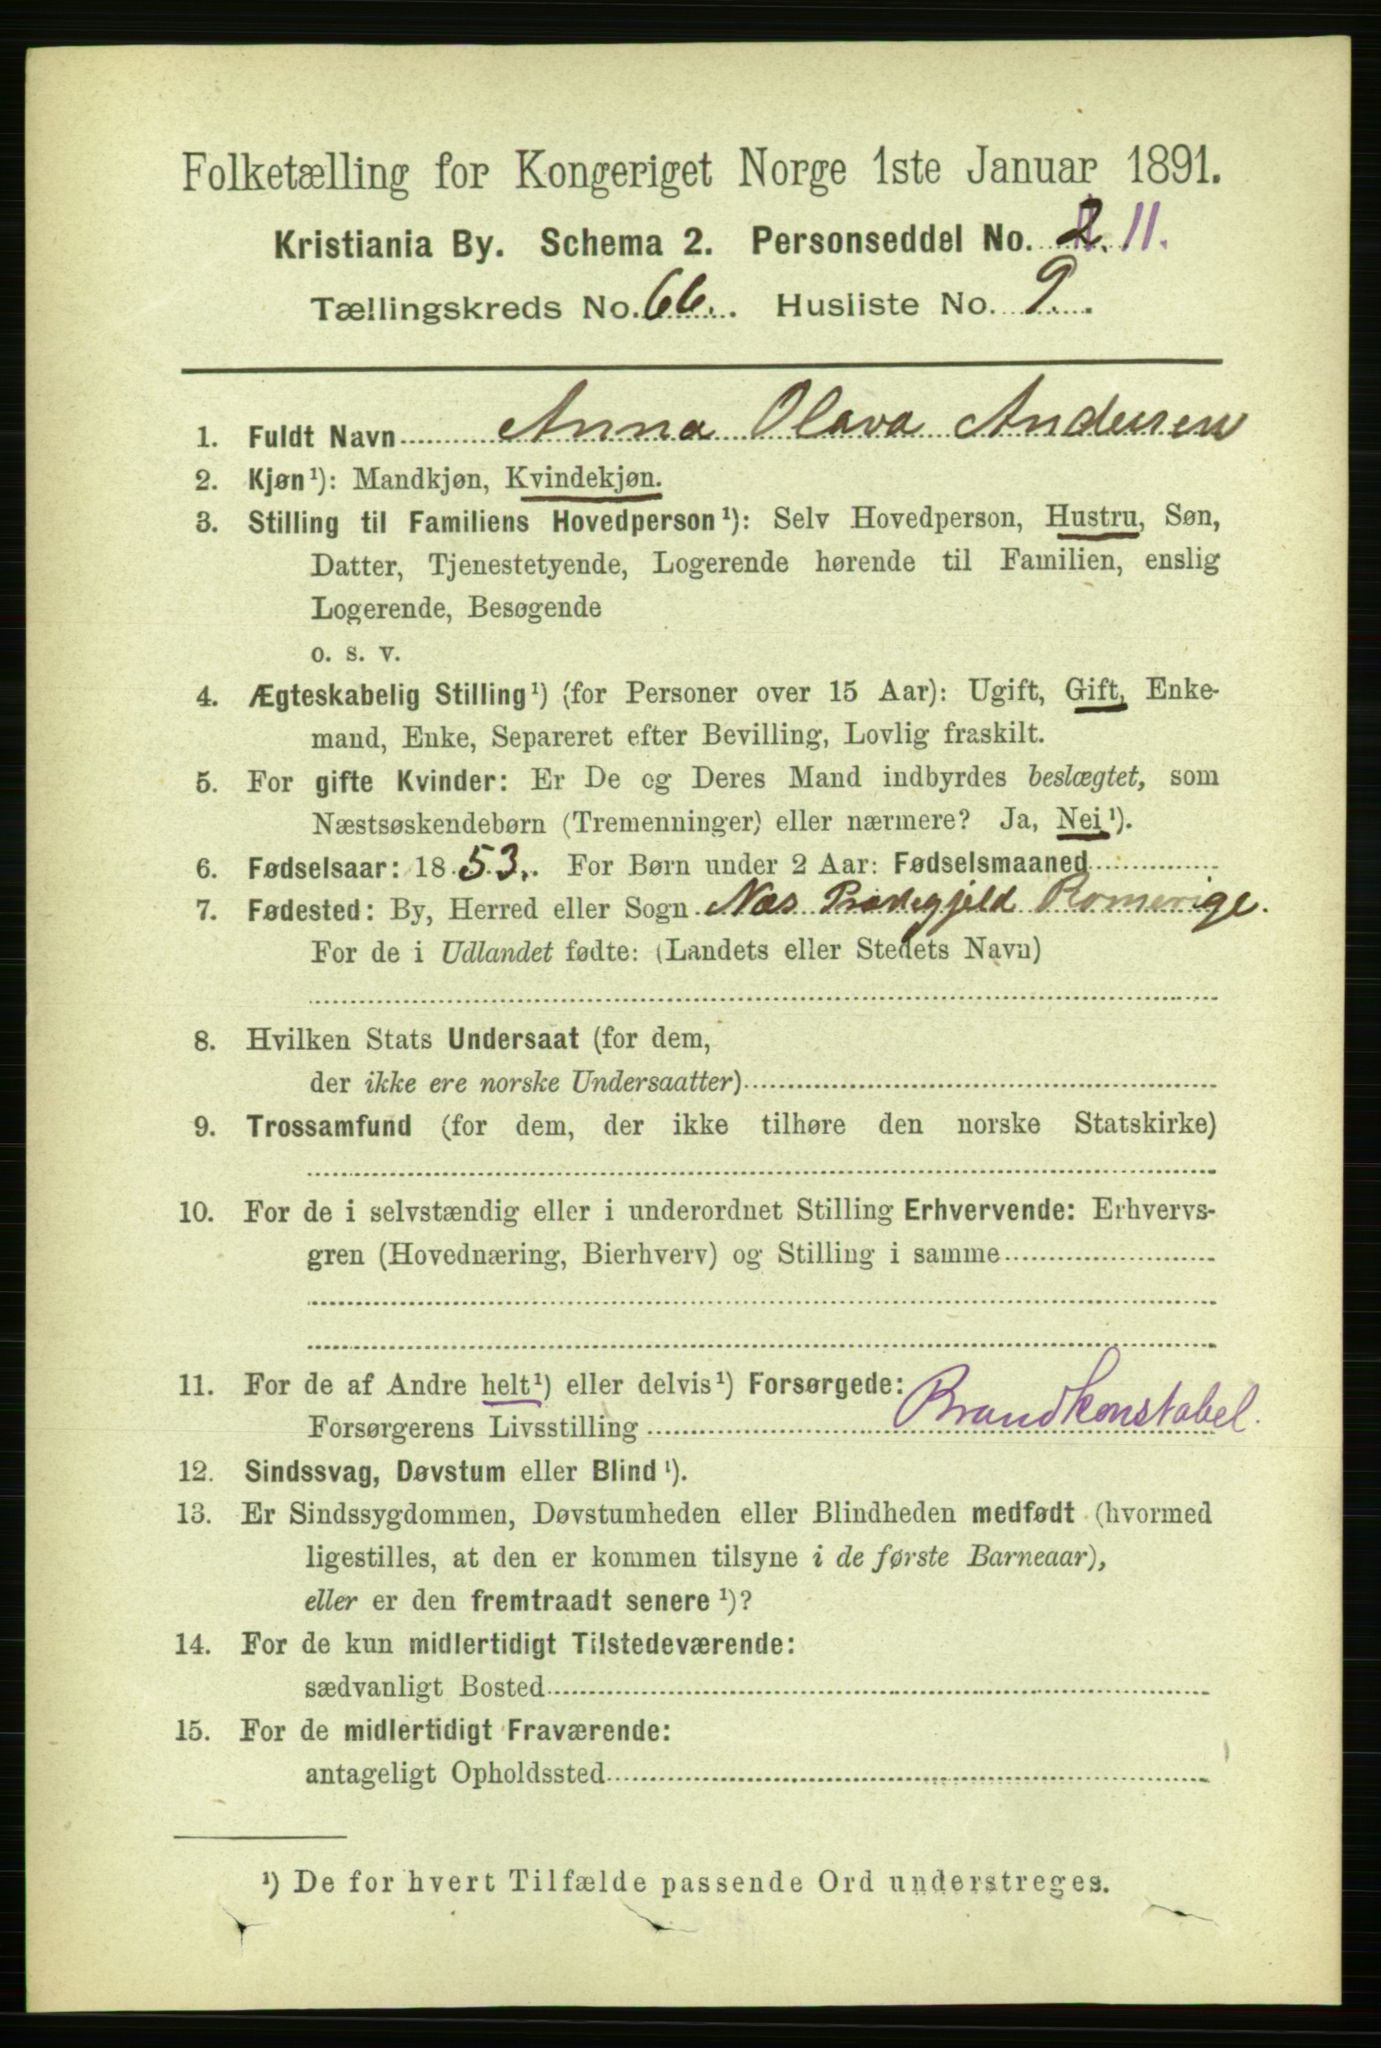 Folketælling for Kongeriget Norge 1ste Januar 1891.
Kristiania By. Schema 2. Personseddel No. 2. 11.
Tællingskreds No. 66. Husliste No. 9.
1. Fuldt Navn Anna Olava Andersen
2. Kjøn¹): Mandkjøn, Kvindekjøn.
3. Stilling til Familiens Hovedperson¹): Selv Hovedperson, Hustru, Søn,
Datter, Tjenestetyende, Logerende hørende til Familien, enslig
Logerende, Besøgende
o. s. v.
4. Ægteskabelig Stilling¹) (for Personer over 15 Aar): Ugift, Gift, Enke-
mand, Enke, Separeret efter Bevilling, Lovlig fraskilt.
5. For gifte Kvinder: Er De og Deres Mand indbyrdes beslægtet, som
Næstsøskendebørn (Tremenninger) eller nærmere? Ja, Nei¹).
6. Fødselsaar: 1853. For Børn under 2 Aar: Fødselsmaaned
7. Fødested: By, Herred eller Sogn Næs Præstegjeld Romerige.
For de i Udlandet fødte: (Landets eller Stedets Navn)
8. Hvilken Stats Undersaat (for dem,
der ikke ere norske Undersaatter)
9. Trossamfund (for dem, der ikke tilhøre den norske Statskirke)
10. For de i selvstændig eller i underordnet Stilling Erhvervende: Erhvervs-
gren (Hovednæring, Bierhverv) og Stilling i samme
11. For de af Andre helt¹) eller delvis¹) Forsørgede:
Forsørgerens Livsstilling Brandkonstabel.
12. Sindssvag, Døvstum eller Blind¹).
13. Er Sindssygdommen, Døvstumheden eller Blindheden medfødt (hvormed
ligestilles, at den er kommen tilsyne i de første Barneaar),
eller er den fremtraadt senere¹)?
14. For de kun midlertidigt Tilstedeværende:
sædvanligt Bosted
15. For de midlertidigt Fraværende:
antageligt Opholdssted
¹) De for hvert Tilfælde passende Ord understreges.